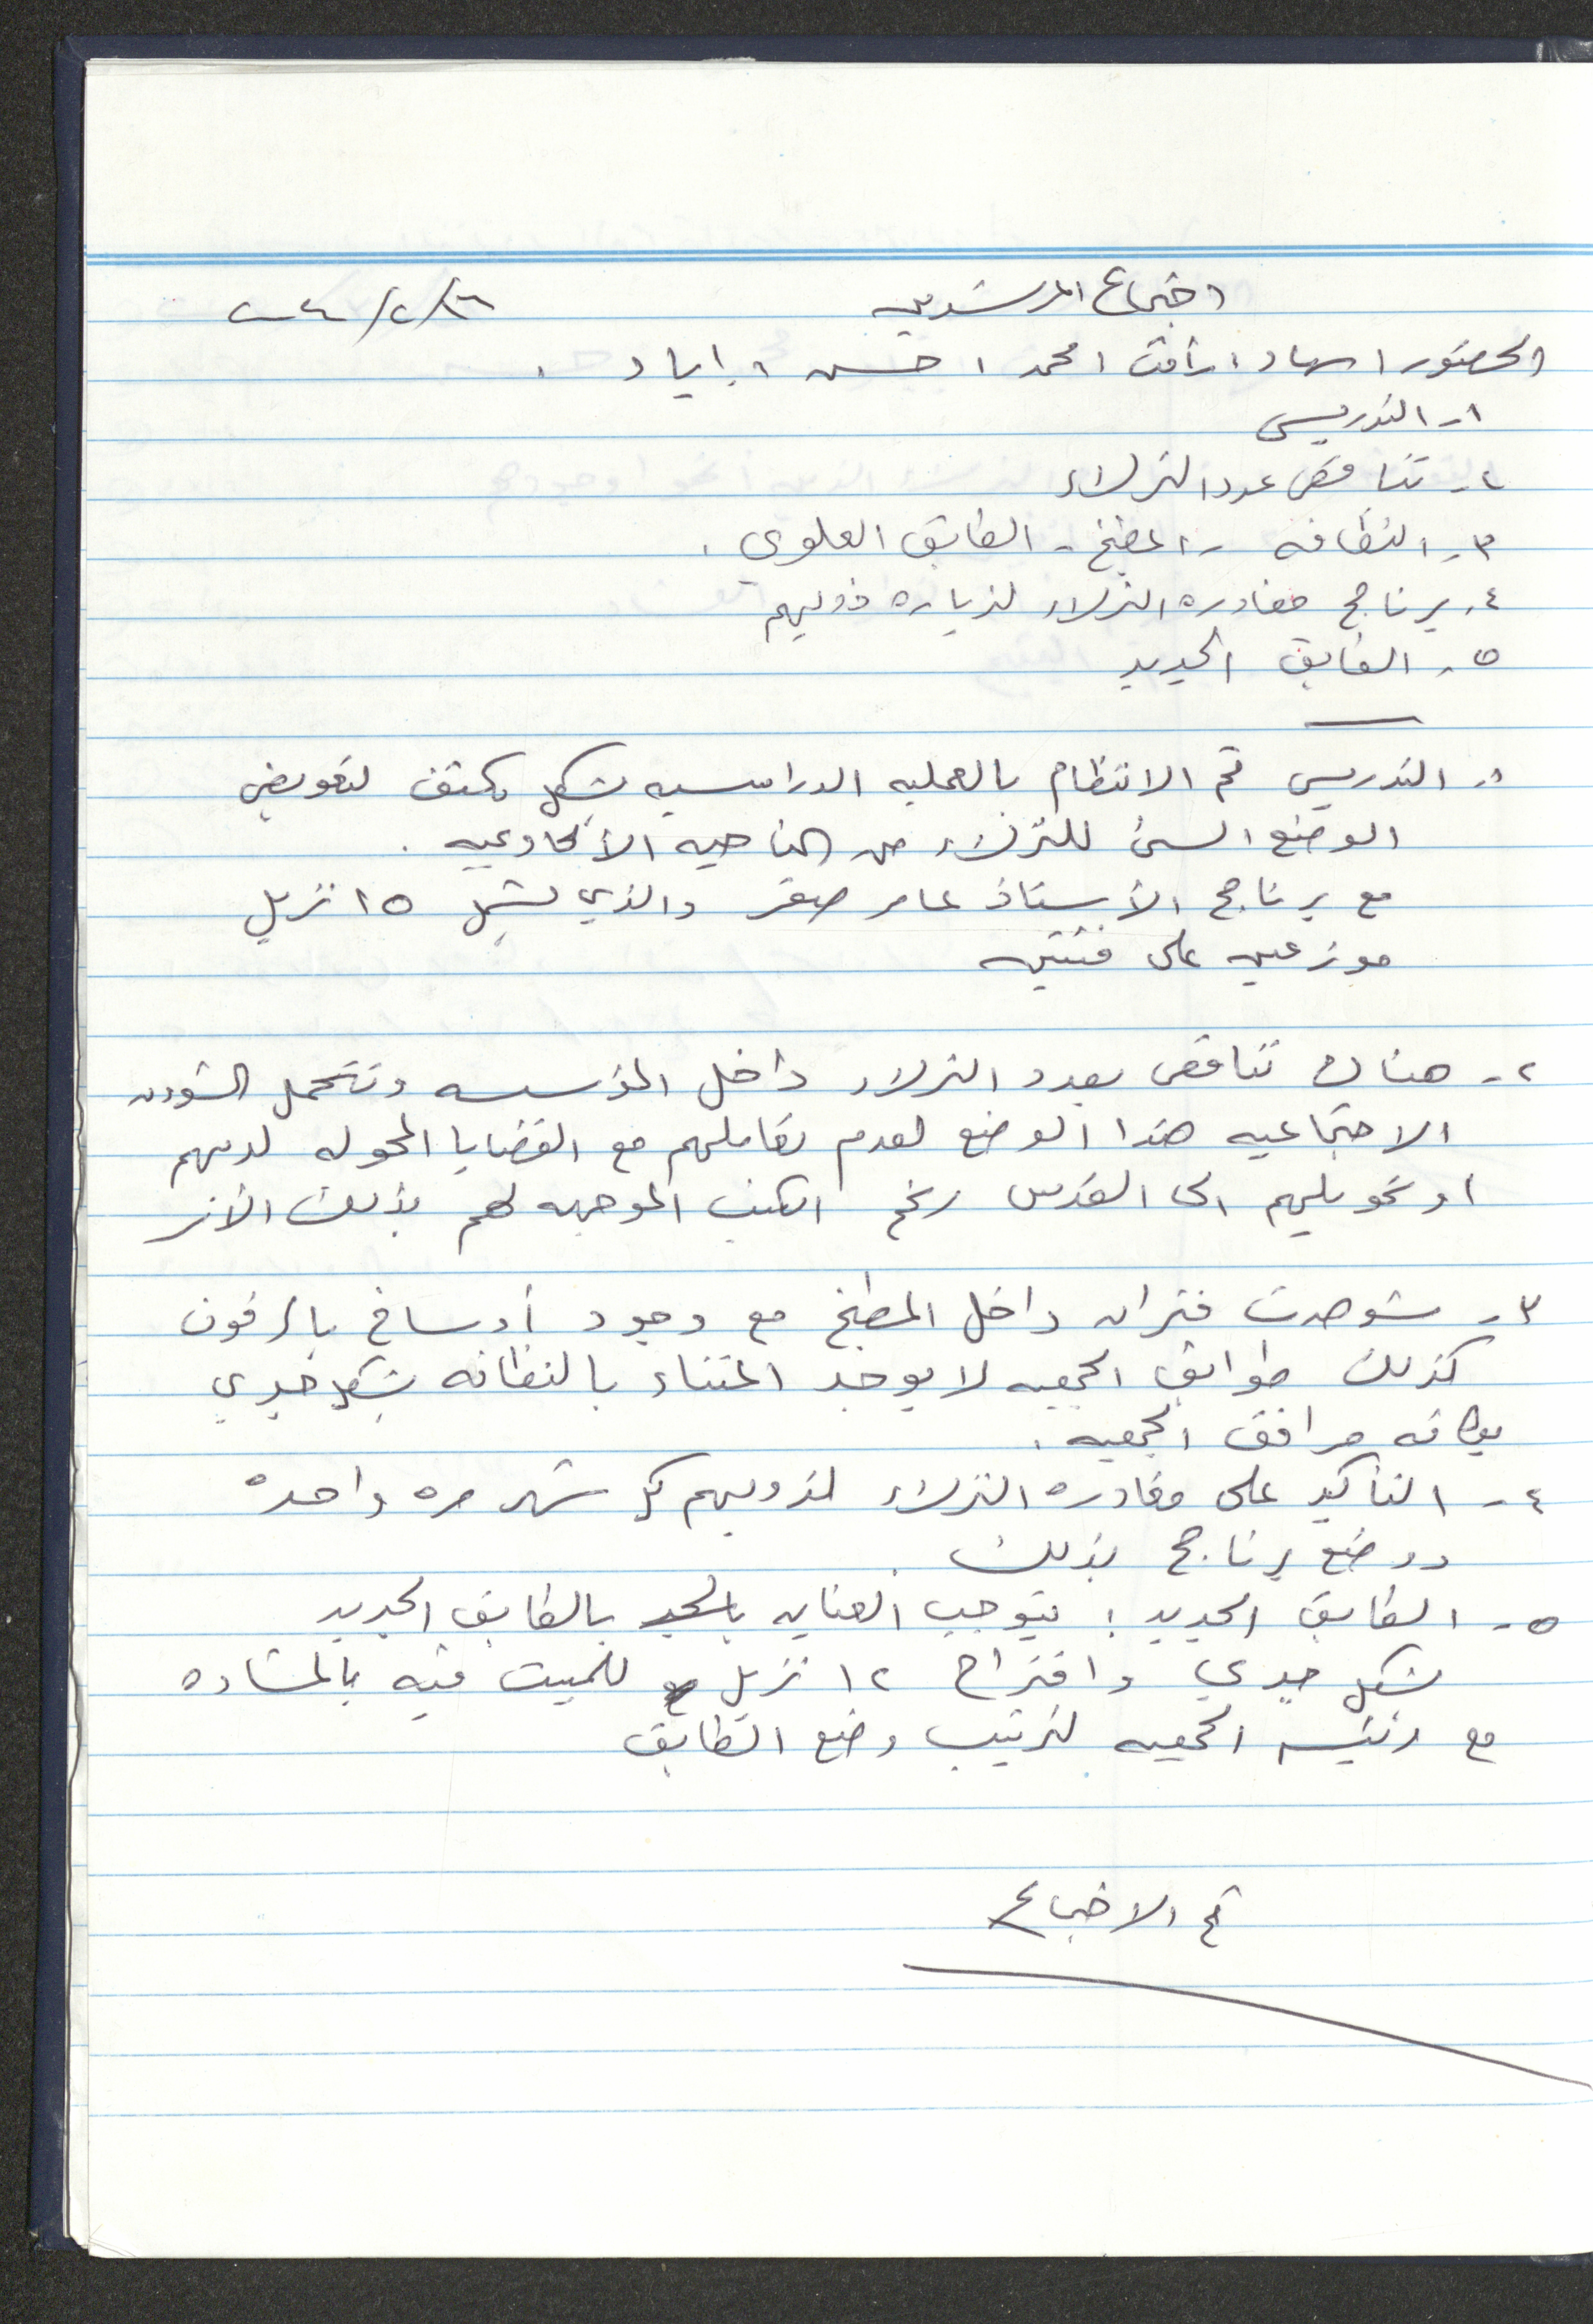 اجتماع المرشدين
الحضور ، سهاد ، رأفت ، محمد ، حسن ، إياد .
١- التدريس
٢- تناقص عدد النزلاء
٣- النظافه - المطبخ - الطابق العلوي .
٤- برنامج مغادره النزلاء لزياره ذوليهم
٥- الطابق الجديد
١- التدريس تم الانتظام بالعمليه الدراسيه بشكل مكثف لتعويض
الوضع السئ للنزلاء من الناحيه الأكاديميه .
مع برنامج الأستاذ عامر صقر والذي يشمل ١٥ نزيل
موزعين على فئتين
٢- هناك تناقص بعدد النزلاء داخل المؤسسه وتتحمل الشؤون
الاجتماعيه هذا الوضع لعدم تعاملهم مع القضايا المحوله لديهم
او تحويلهم الى القدس رغم الكتب الموجهه لهم بذلك الأثر
٣- شوهدت فئران داخل المطبخ مع وجود أوساخ بالرفوف
كذلك طوابق الجمعيه لا يوجد اعتناء بالنظافه بشكل جدي
بكافه مرافق الجمعيه .
٤- التأكيد على مغادره النزلاء لذويهم كل شهر مره واحده
ووضع برنامج بذلك .
٥- الطابق الجديد : يتوجب العنايه بالطابق الجديد
بشكل جدي واقتراح ١٢ نزيل للمبيت فيه بالمشاوره
مع رئيس الجمعيه لترتيب وضع الطابق
تم الاجتماع